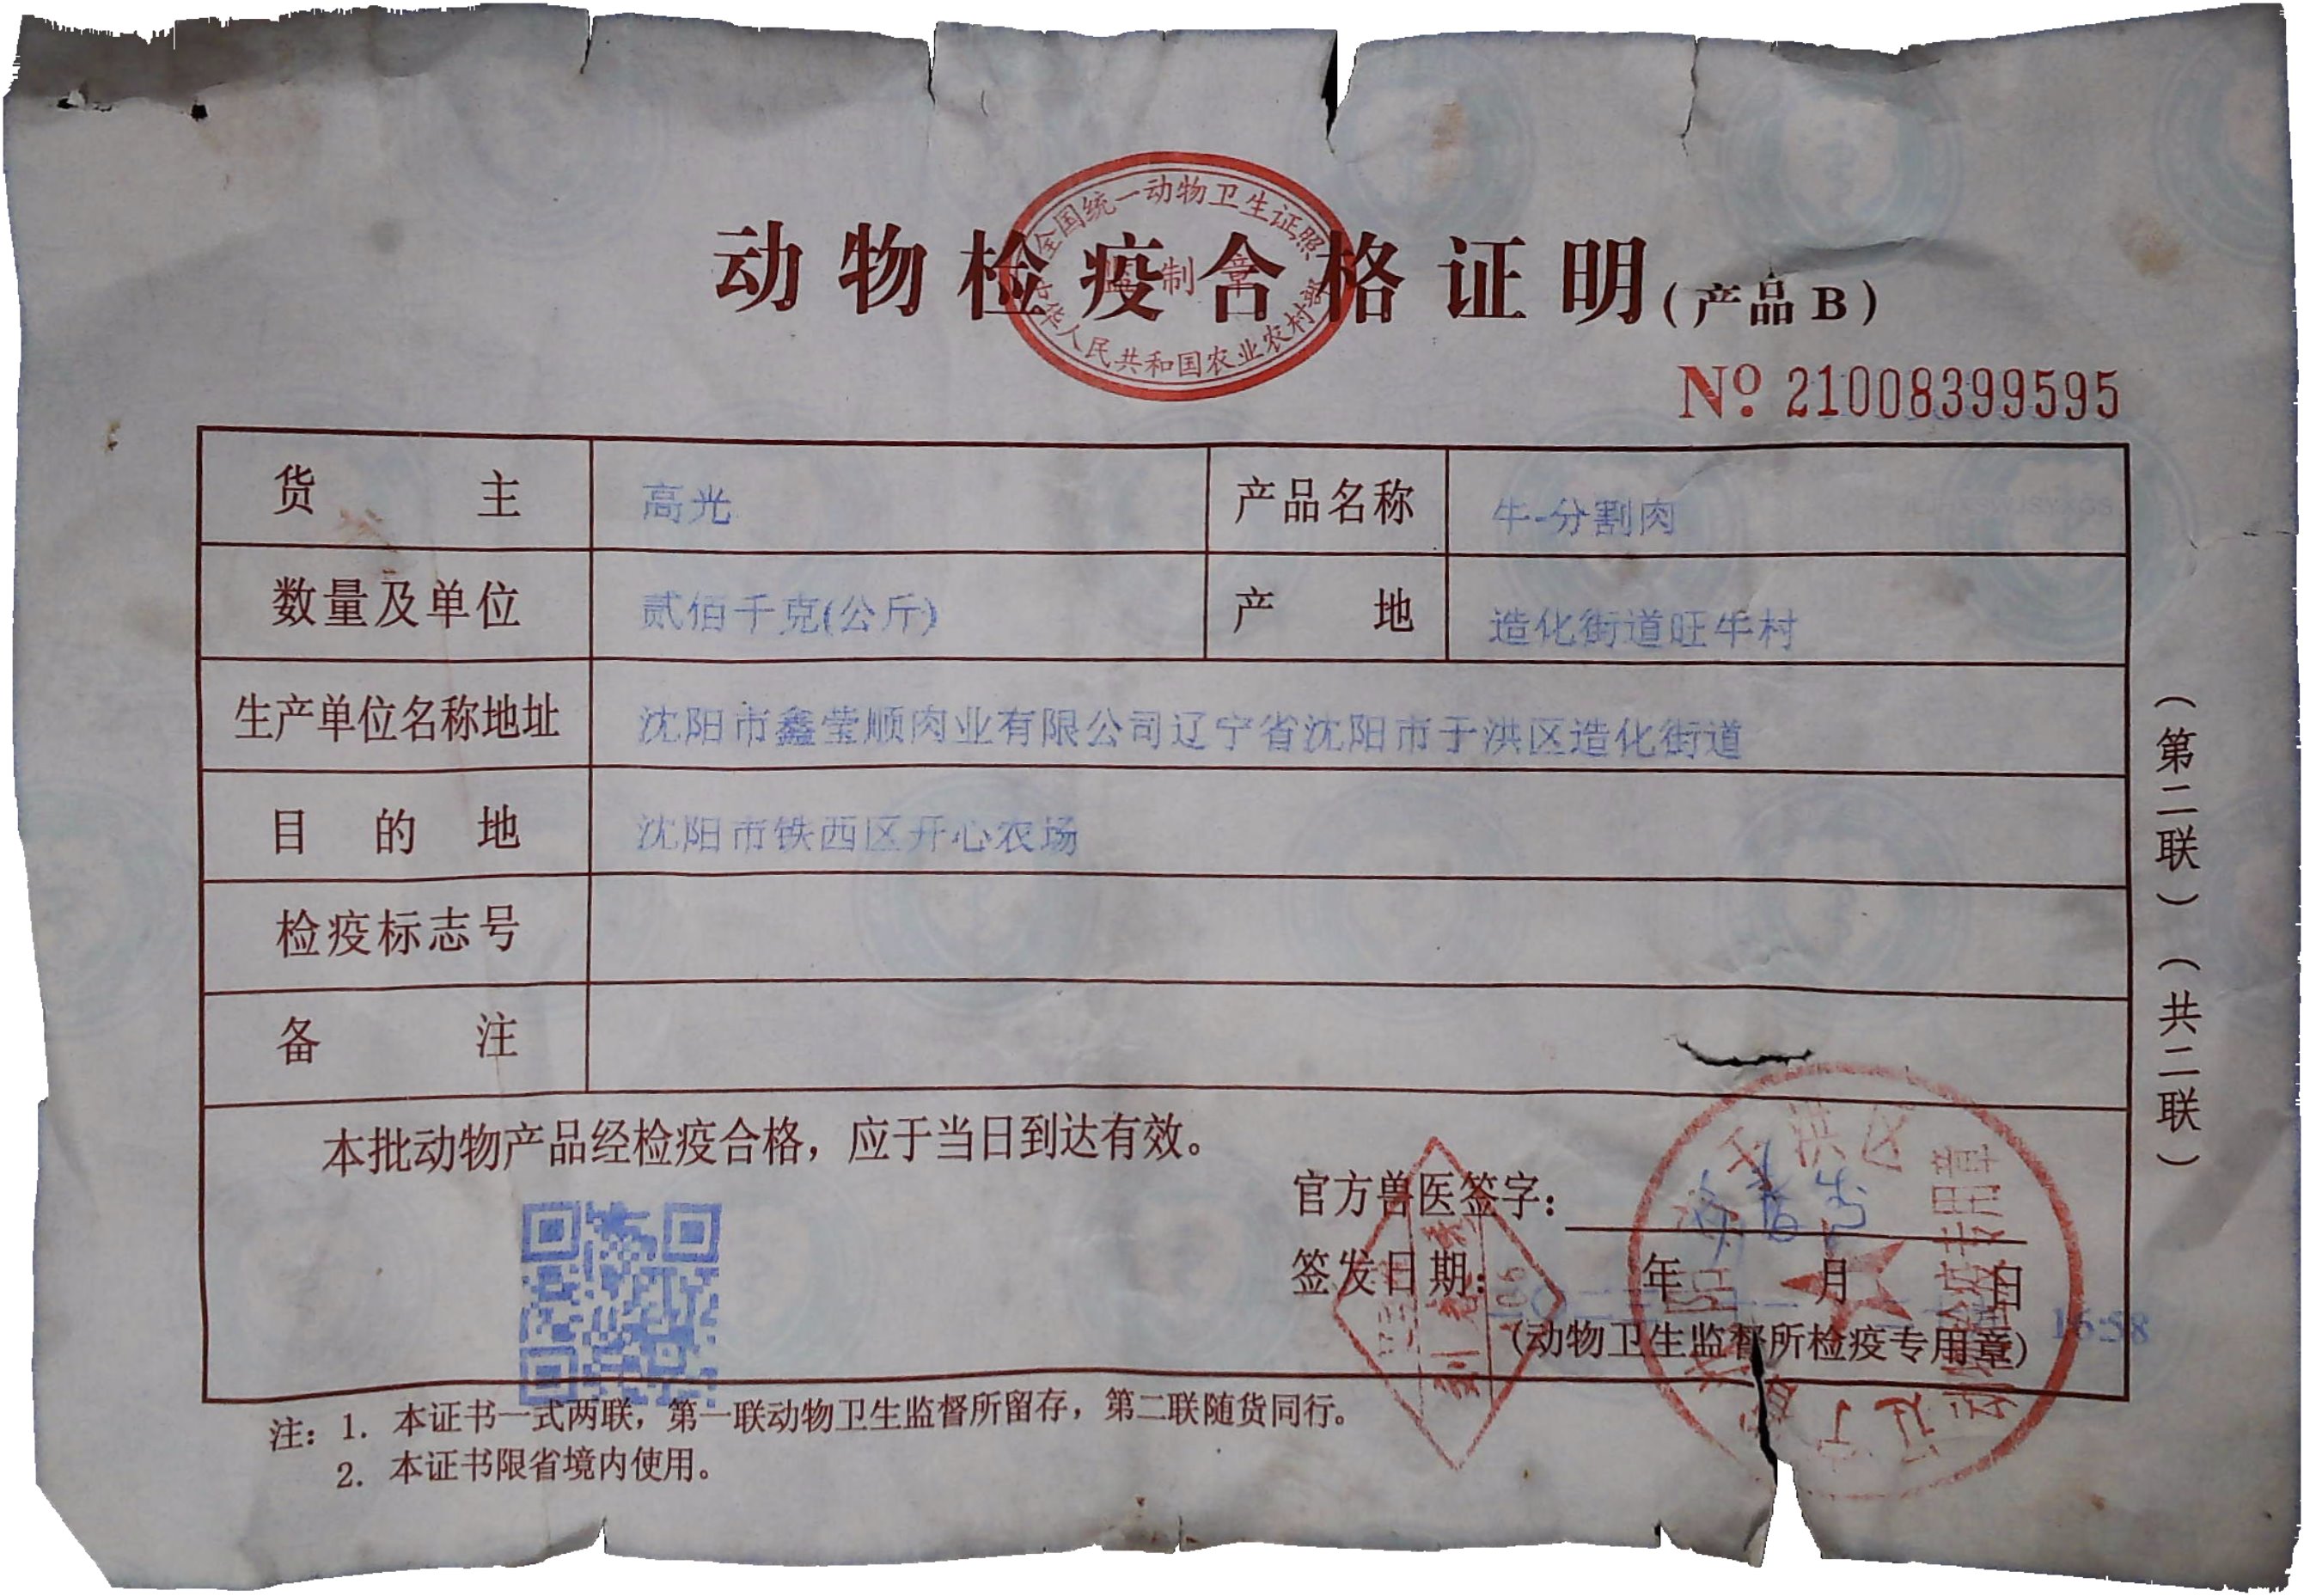 动物检疫合格证明(产品B)
全国统一动物卫生证照
监制章
中华人民共和国农业农村部
Nº 21008399595
货主 高光 产品名称 牛-分割肉
数量及单位 贰佰千克(公斤) 产地 造化街道旺牛村
生产单位名称地址 沈阳市鑫莹顺肉业有限公司辽宁省沈阳市于洪区造化街道
目的地 沈阳市铁西区开心农场
检疫标志号
备注
本批动物产品经检疫合格，应于当日到达有效。
官方兽医签字：
签发日期： 年 月 日
16:58
(动物卫生监督所检疫专用章)
于洪区
检疫专用章
注：1. 本证书一式两联，第一联动物卫生监督所留存，第二联随货同行。
2. 本证书限省境内使用。
（第二联）（共二联）